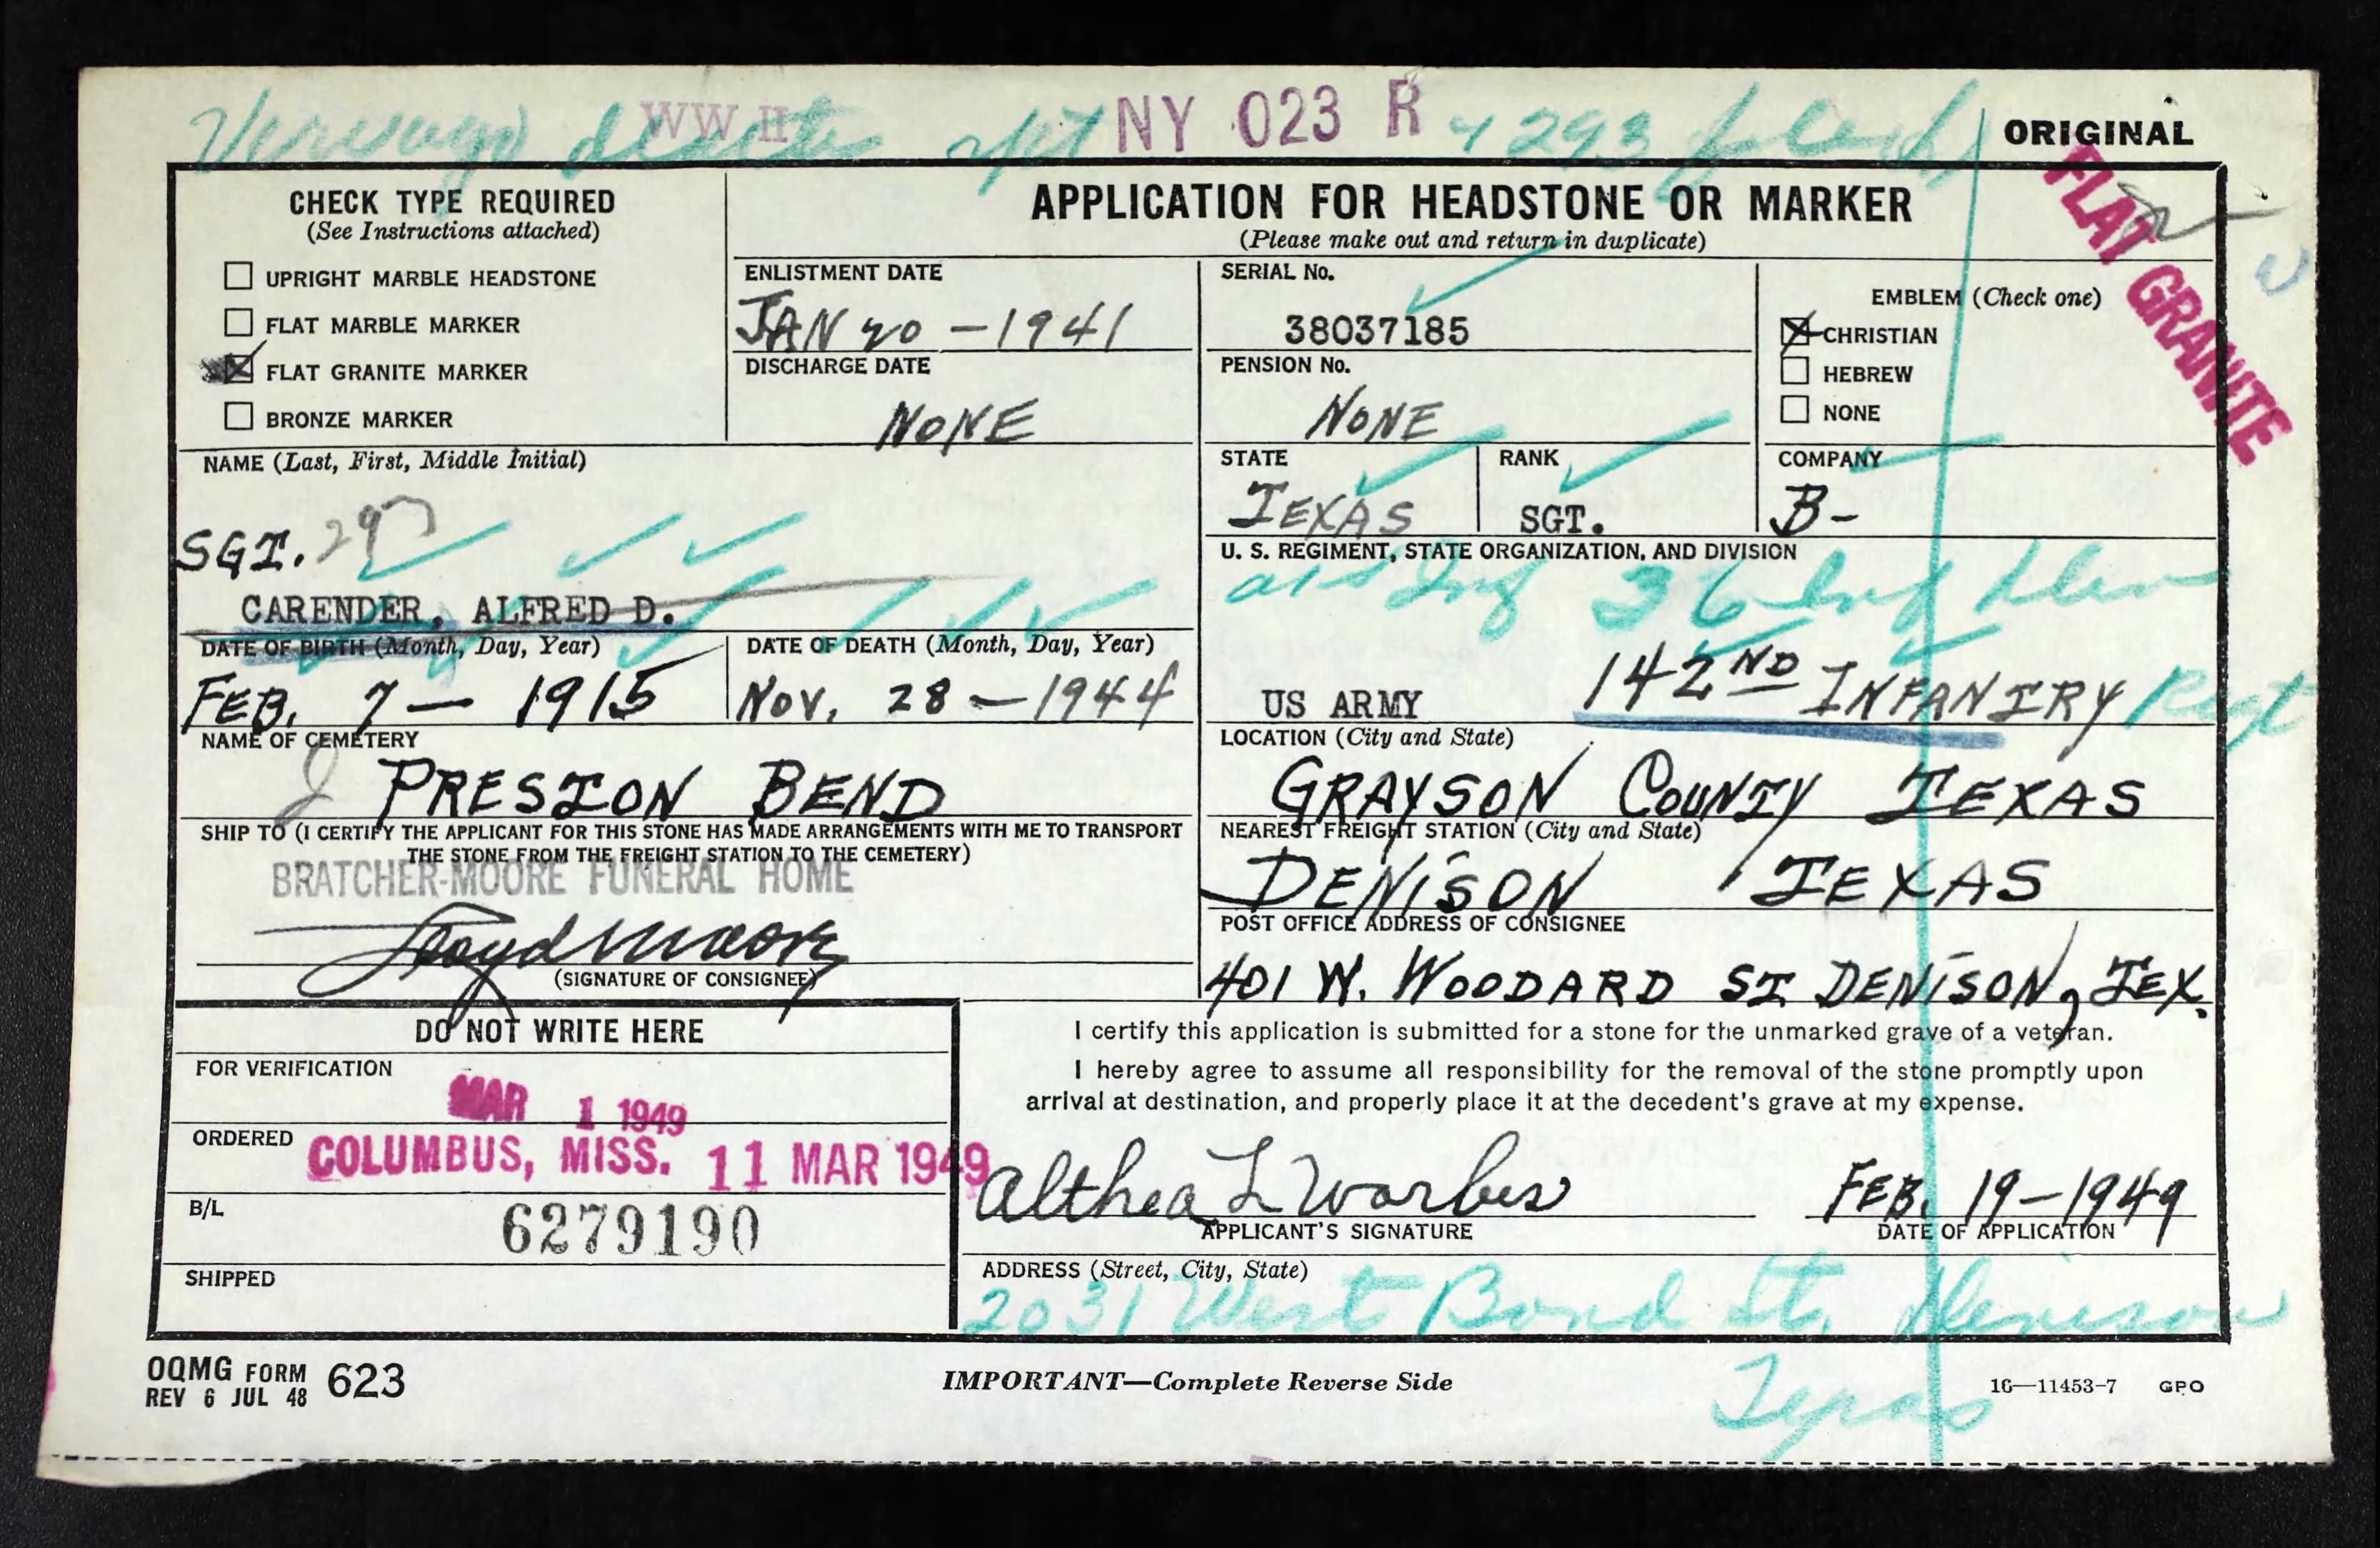 WW II
NY 023 R
4293
ORIGINAL
FLAT GRANITE
CHECK TYPE REQUIRED
(See Instructions attached)
UPRIGHT MARBLE HEADSTONE
FLAT MARBLE MARKER
FLAT GRANITE MARKER
BRONZE MARKER
APPLICATION FOR HEADSTONE OR MARKER
(Please make out and return in duplicate)
ENLISTMENT DATE
JAN 20 - 1941
DISCHARGE DATE
NONE
SERIAL No.
38037185
PENSION No.
NONE
EMBLEM (Check one)
CHRISTIAN
HEBREW
NONE
NAME (Last, First, Middle Initial)
SGT.
CARENDER, ALFRED D.
STATE
TEXAS
RANK
SGT.
COMPANY
B-
U. S. REGIMENT, STATE ORGANIZATION, AND DIVISION
36 Inf Div
US ARMY 142ND INFANTRY Regt
DATE OF BIRTH (Month, Day, Year)
FEB. 7 - 1915
DATE OF DEATH (Month, Day, Year)
NOV. 28 - 1944
NAME OF CEMETERY
PRESTON BEND
LOCATION (City and State)
GRAYSON COUNTY TEXAS
SHIP TO (I CERTIFY THE APPLICANT FOR THIS STONE HAS MADE ARRANGEMENTS WITH ME TO TRANSPORT
THE STONE FROM THE FREIGHT STATION TO THE CEMETERY)
BRATCHER-MOORE FUNERAL HOME
Floyd Moore
(SIGNATURE OF CONSIGNEE)
NEAREST FREIGHT STATION (City and State)
DENISON, TEXAS
POST OFFICE ADDRESS OF CONSIGNEE
401 W. WOODARD ST DENISON, TEX.
DO NOT WRITE HERE
FOR VERIFICATION
MAR 1 1949
ORDERED
COLUMBUS, MISS. 11 MAR 1949
B/L
6279190
SHIPPED
I certify this application is submitted for a stone for the unmarked grave of a veteran.
I hereby agree to assume all responsibility for the removal of the stone promptly upon
arrival at destination, and properly place it at the decedent's grave at my expense.
Althea L Worbes
APPLICANT'S SIGNATURE
FEB. 19-1949
DATE OF APPLICATION
ADDRESS (Street, City, State)
2031 West Bond St. Denison
Texas
OQMG FORM 623
REV 6 JUL 48
IMPORTANT—Complete Reverse Side
16—11453-7 GPO